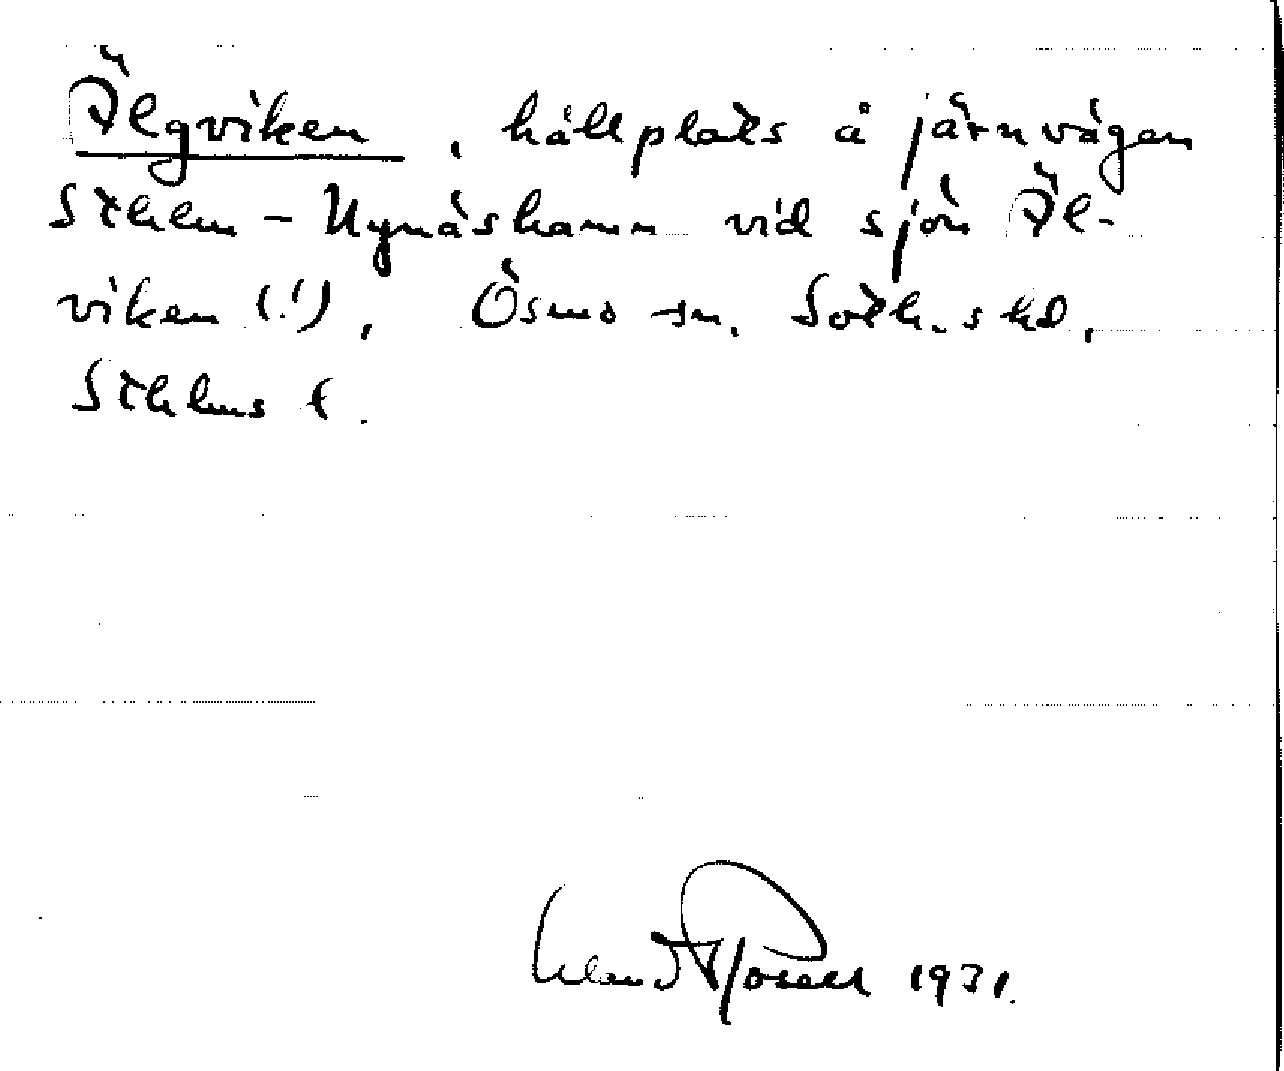 Älgviken, hållplats å järnvägen
Sthlm - Nynäshamn vid sjön Äl-
viken (!), Ösmo sn. Soth. skd,
Sthlms l.
Erland Rosell 1931.